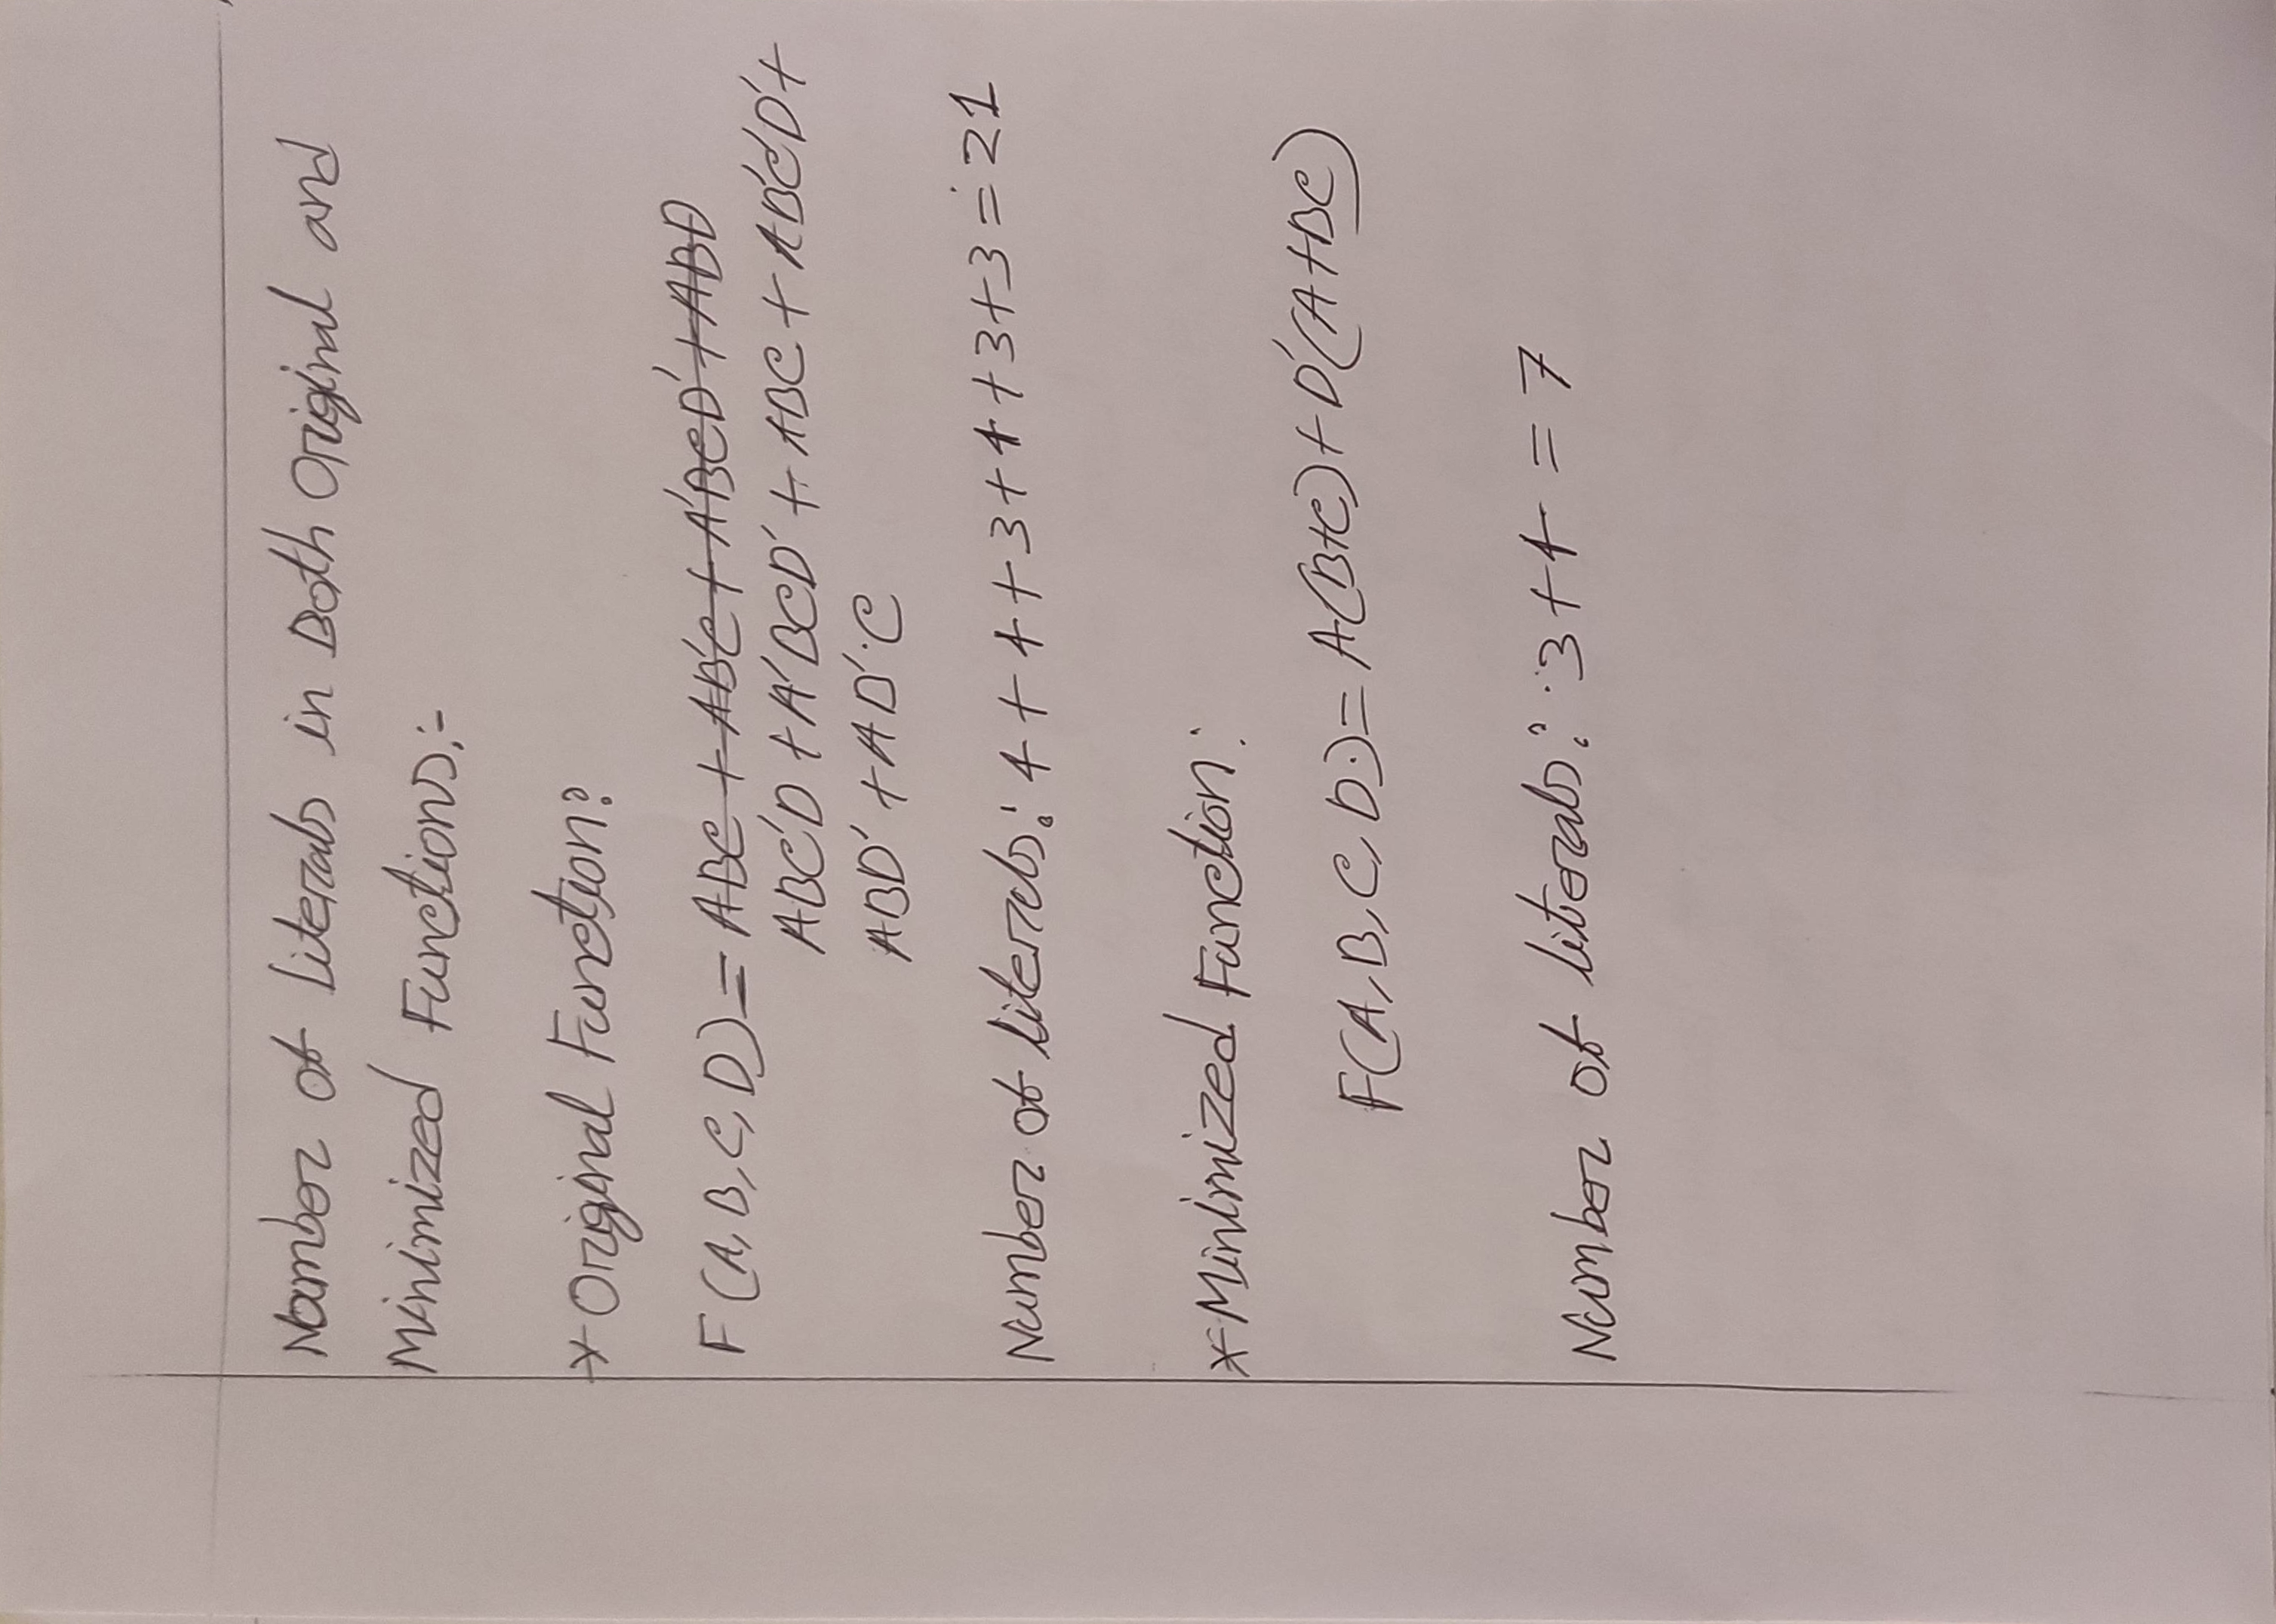 Number of Literals in Both Original and
Minimized Functions:-
* Original Function:
F(A,B,C,D)= ABC + AB'C + A'BCD' + ABD
ABC'D + A'BCD' + ABC + AB'C'D' +
ABD' + AB'·C
Number of literals: 4 + 4 + 3 + 4 + 3 + 3 = 21
* Minimized Function:
F(A,B,C,D)= A(B+C) + D'(A+BC)
Number of literals: 3 + 4 = 7